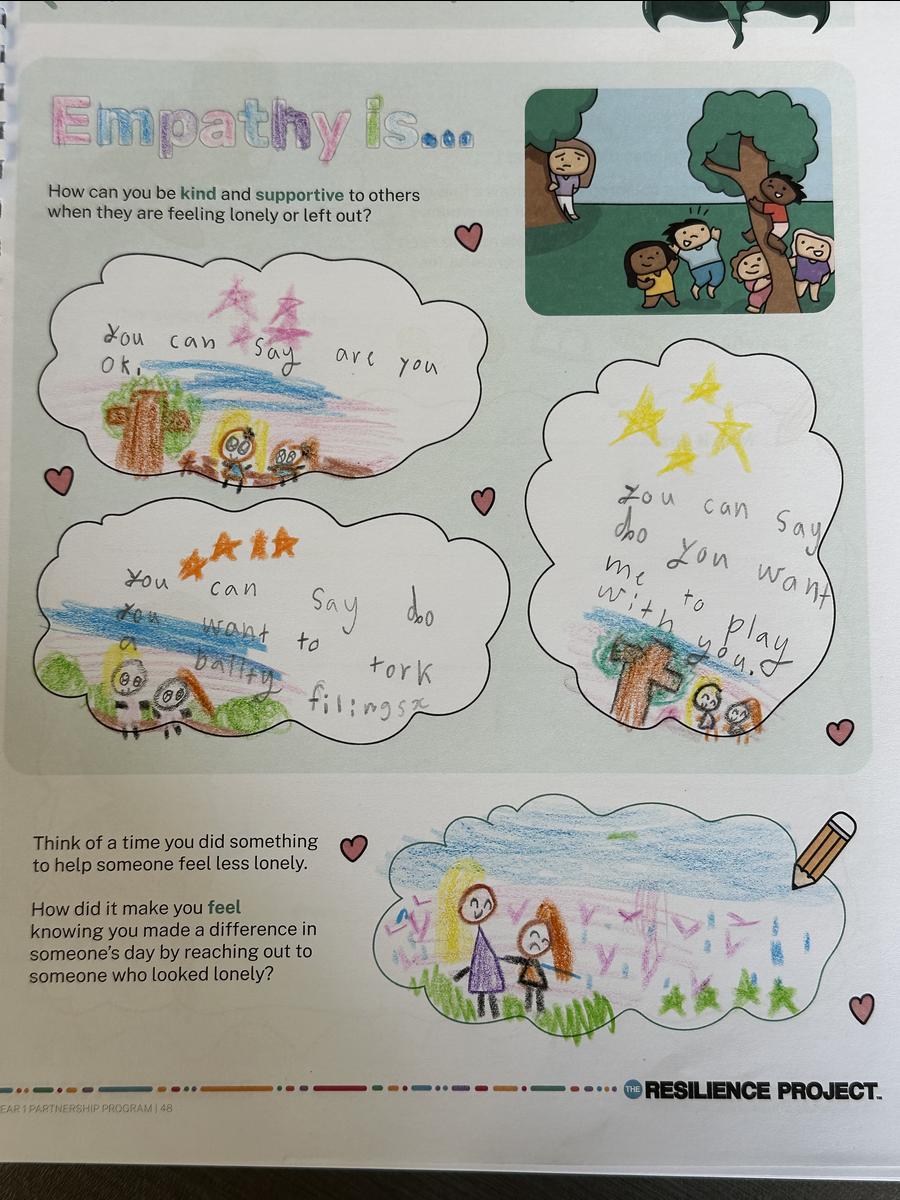 Empathy is...
How can you be kind and supportive to others
when they are feeling lonely or left out?
You can say are you
ok.
You can say do
you want to
a ballty tork
filings
You can say
do you want
me to play
with you.
Think of a time you did something
to help someone feel less lonely.
How did it make you feel
knowing you made a difference in
someone's day by reaching out to
someone who looked lonely?
THE RESILIENCE PROJECT™
EAR 1 PARTNERSHIP PROGRAM | 48